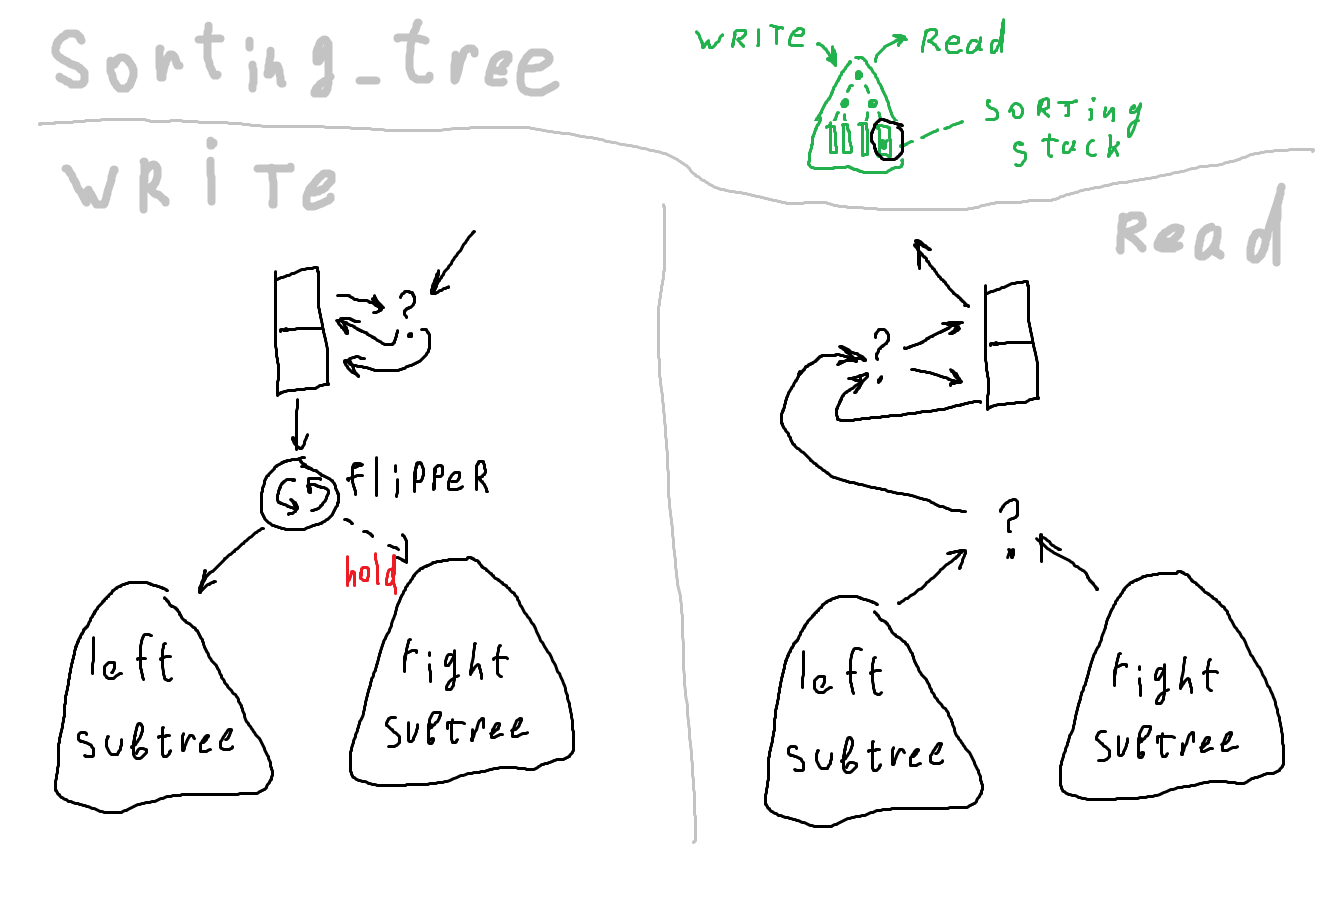 Sorting_tree
WRITE
Read
SORTing
stack
WRiTe
Read
?
?
flipper
hold
?
left
subtree
right
subtree
left
subtree
right
subtree